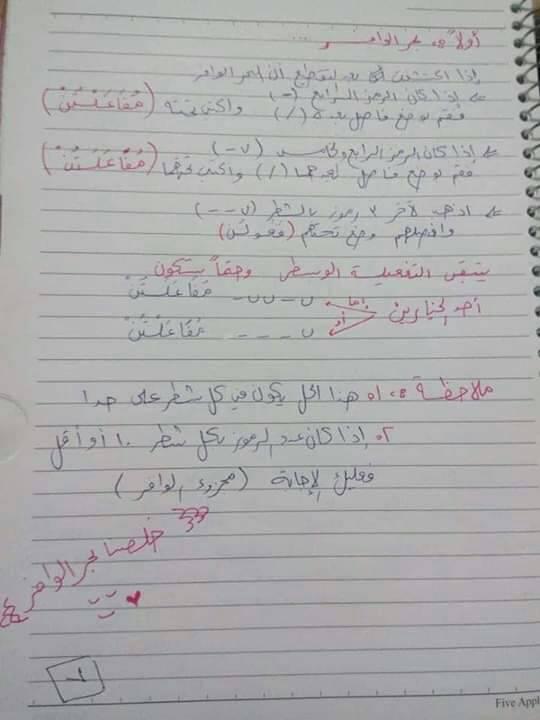 أولاً :- بحر الوافر ...
إذا اكتشفت بعد التقطيع أن البحر الوافر
← إذا كان الرمز الرابع (-)
فقم بوضع فاصل بعده (/) واكتب تحته (مُفَاعَلْتُنْ)
← إذا كان الرمز الرابع والخامس (ں -)
فقم بوضع فاصل بعدهما (/) واكتب تحتهما (مُفَاعَلَتُنْ)
← اذهب لآخر ٣ رموز بالشطر (ں - -)
وافصلهم وضع تحتهم (فَعُولُنْ)
يتبقى التفعيلة الوسطى وحتماً ستكون
أحد الخيارين إما ں - ں ں - مُفَاعَلَتُنْ
أو ں - - - مُفَاعَلْتُنْ
ملاحظة :- ١. هذا الحل يكون في كل شطر على حدا
٢. إذا كان عدد الرموز بكل شطر ١٠ أو أقل
فعليك الإجابة (مجزوء الوافر)
خلصنا بحر الوافر
Five